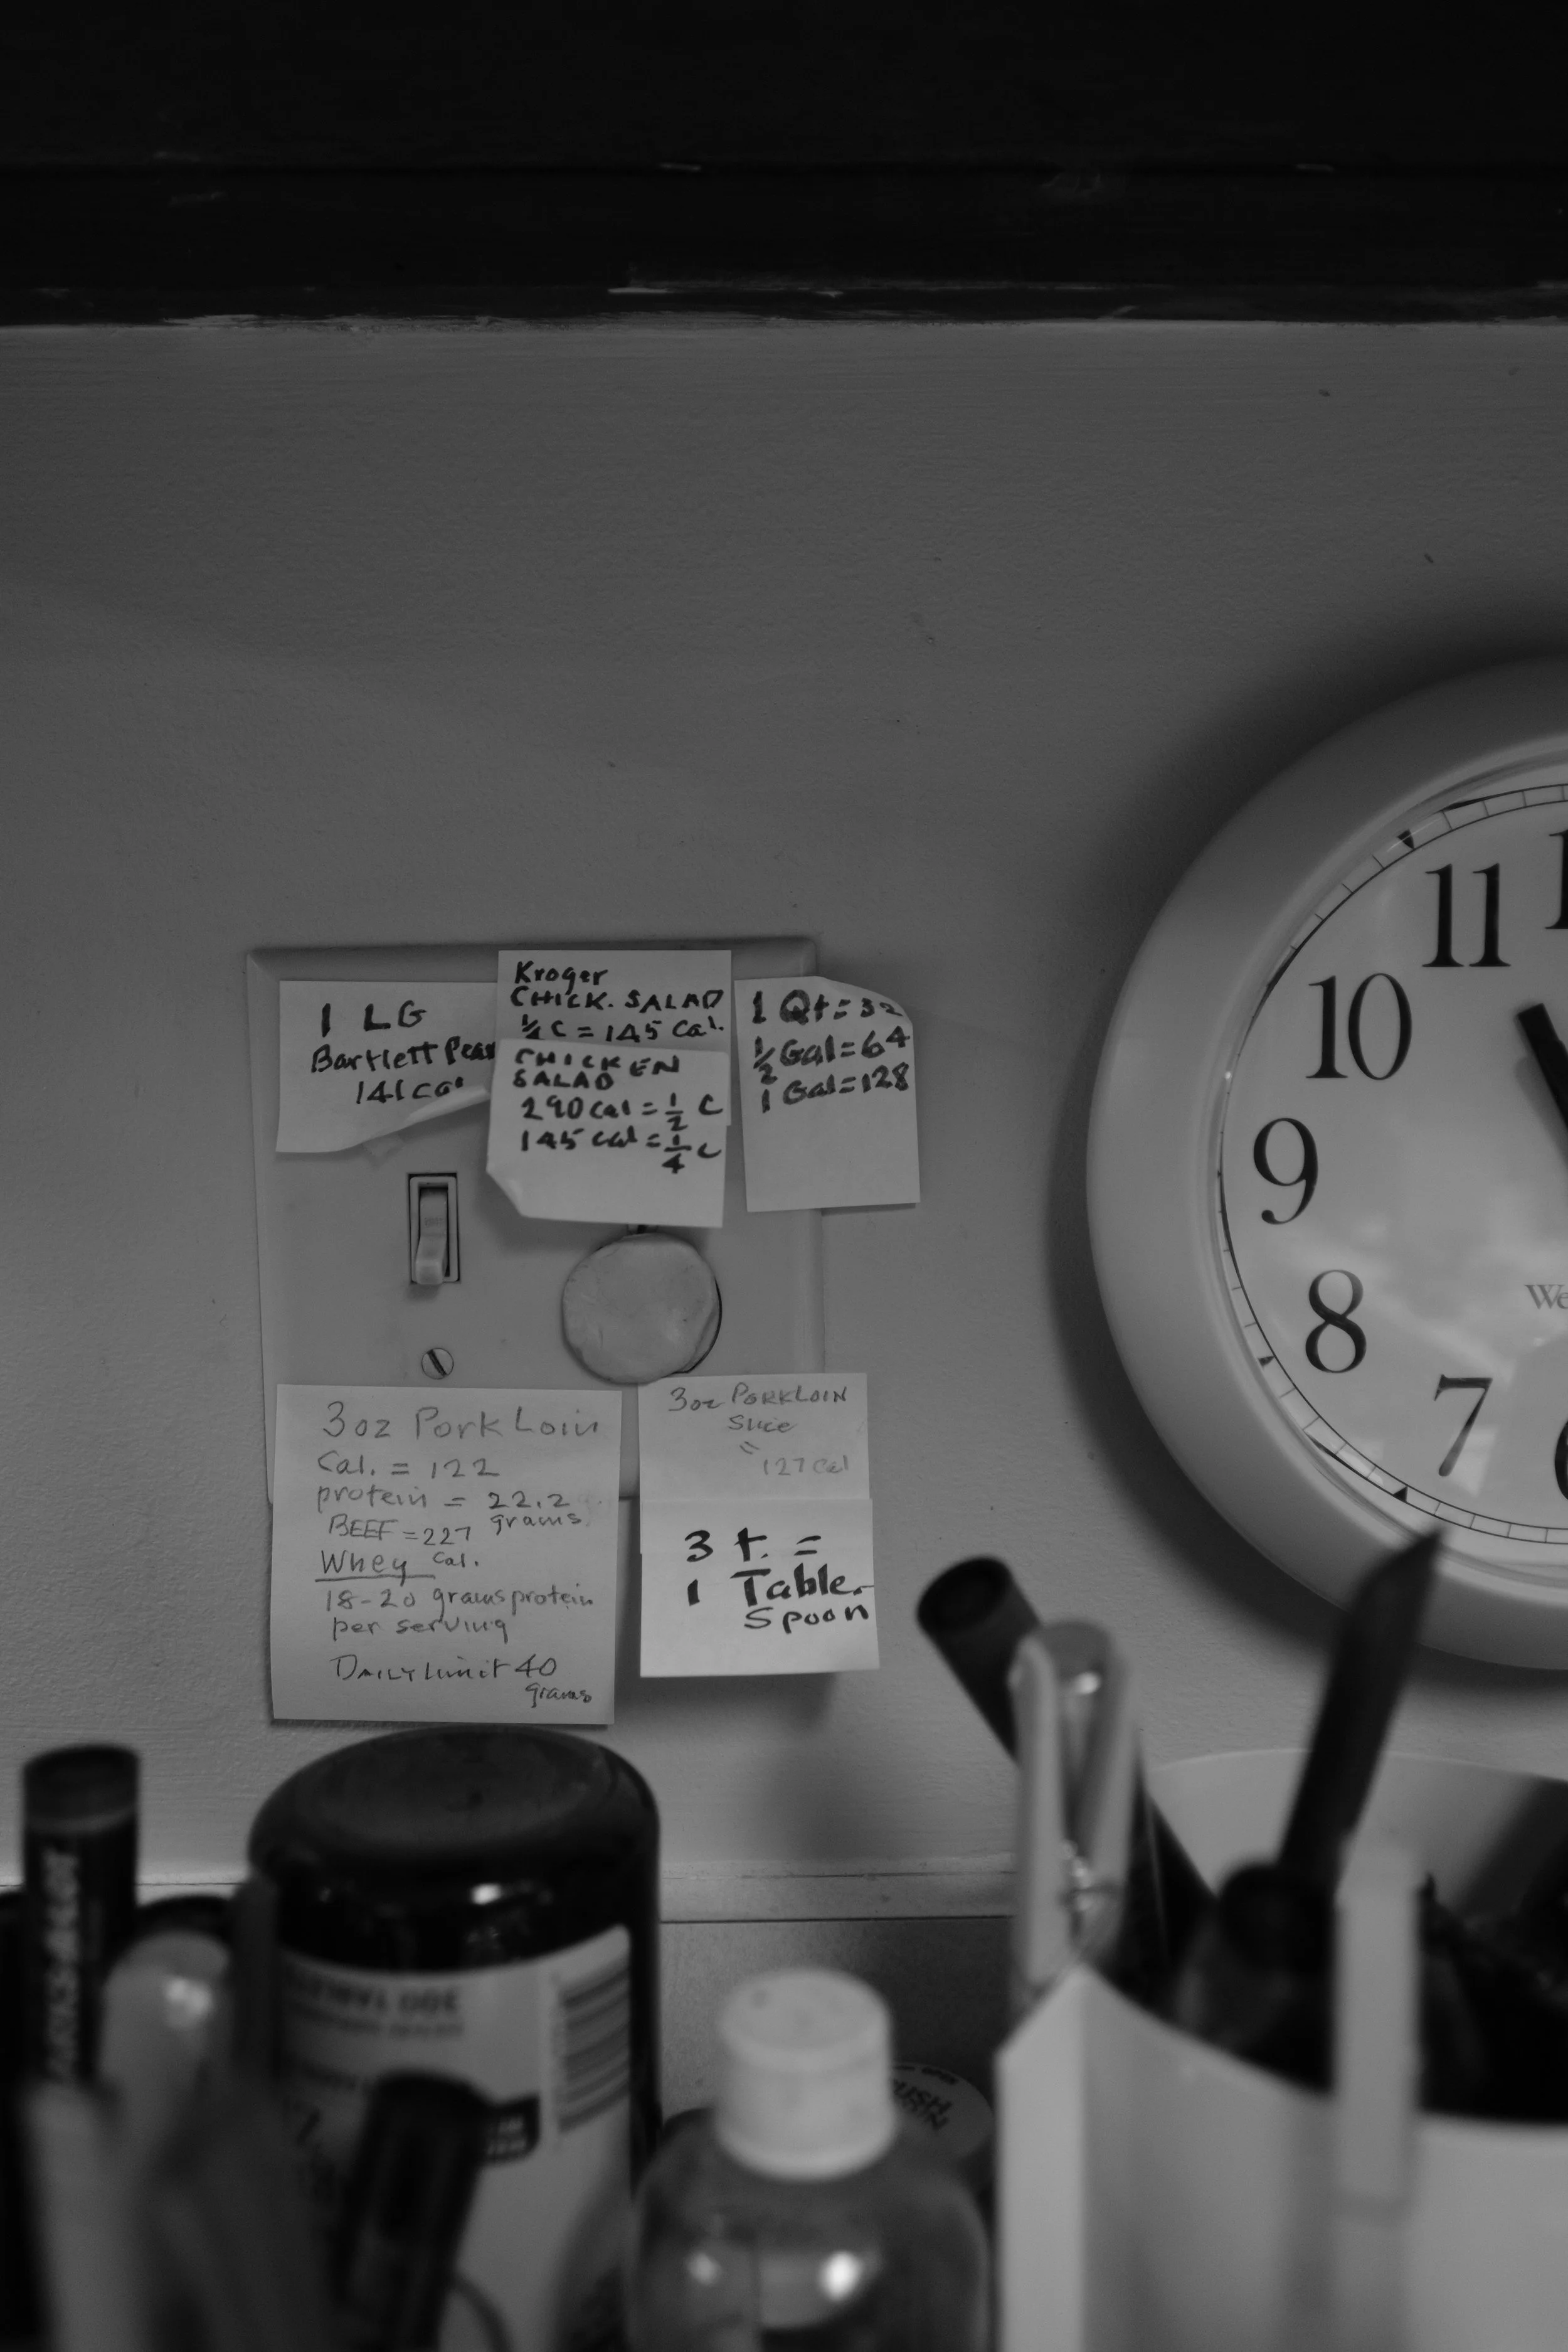 1 LG
Bartlett Pear
141 cal
Kroger
CHICK. SALAD
¼ C = 145 Cal.
CHICKEN
SALAD
290 Cal = ½ C
145 Cal = ¼ C
1 Qt = 32
½ Gal = 64
1 Gal = 128
3oz Pork Loin
Cal. = 122
protein = 22.2
grams
BEEF = 227
Whey Cal.
18-20 grams protein
per serving
DAILY limit 40
grams
3oz PORKLOIN
Slice
=
127 Cal
3 t. =
1 Table-
Spoon
11
10
9
8
7
We